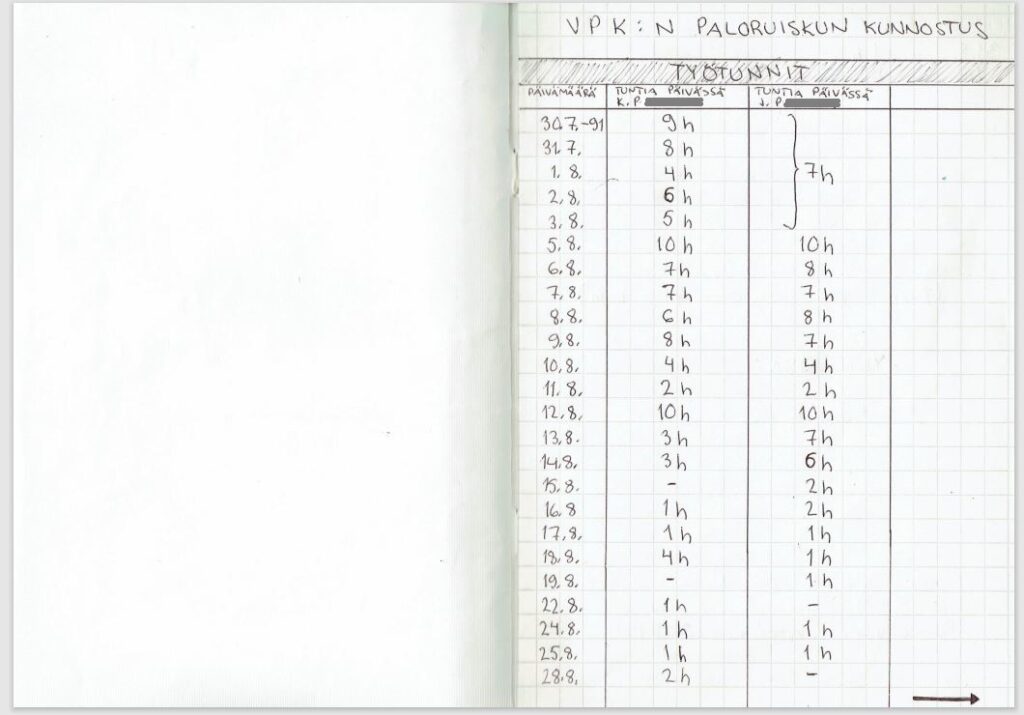 VPK:N PALORUISKUN KUNNOSTUS
TYÖTUNNIT
PÄIVÄMÄÄRÄ TUNTIA PÄIVÄSSÄ TUNTIA PÄIVÄSSÄ
K.P. J.P.
30.7.-91 9h
31.7. 8h
1.8. 4h 7h
2.8. 6h
3.8. 5h
5.8. 10h 10h
6.8. 7h 8h
7.8. 7h 7h
8.8. 6h 8h
9.8. 8h 7h
10.8. 4h 4h
11.8. 2h 2h
12.8. 10h 10h
13.8. 3h 7h
14.8. 3h 6h
15.8. - 2h
16.8 1h 2h
17.8. 1h 1h
18.8. 4h 1h
19.8. - 1h
22.8. 1h -
24.8. 1h 1h
25.8. 1h 1h
28.8. 2h -